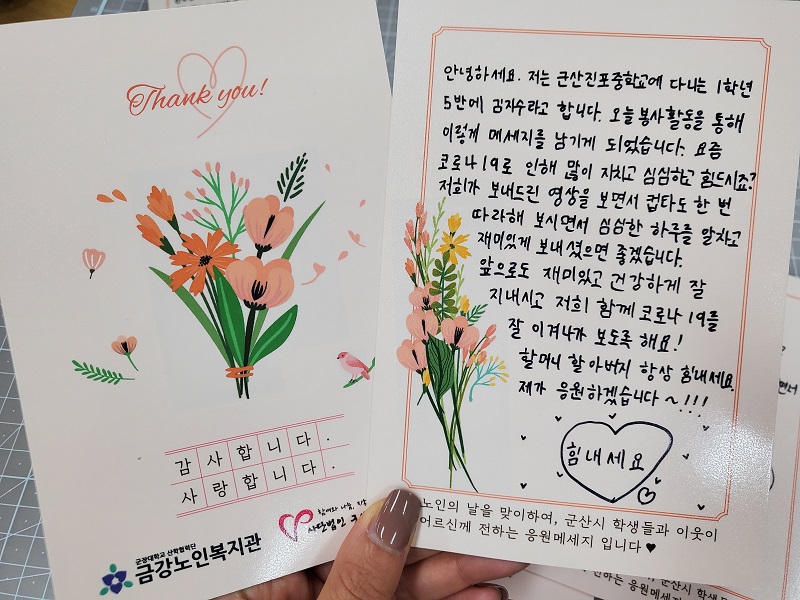 Thank you!
감사합니다.
사랑합니다.
참여와 나눔,
사단법인
군장대학교 산학협력단
금강노인복지관
안녕하세요. 저는 군산진포중학교에 다니는 1학년
5반에 김지수라고 합니다. 오늘 봉사활동을 통해
이렇게 메세지를 남기게 되었습니다. 요즘
코로나19로 인해 많이 지치고 심심하고 힘드시죠?
저희가 보내드린 영상을 보면서 컵타도 한 번
따라해 보시면서 심심한 하루를 알차고
재미있게 보내셨으면 좋겠습니다.
앞으로도 재미있고 건강하게 잘
지내시고 저희 함께 코로나19를
잘 이겨나가 보도록 해요!
할머니 할아버지 항상 힘내세요.
제가 응원하겠습니다~!!!
힘내세요
노인의 날을 맞이하여, 군산시 학생들과 이웃이
어르신께 전하는 응원메세지 입니다♥